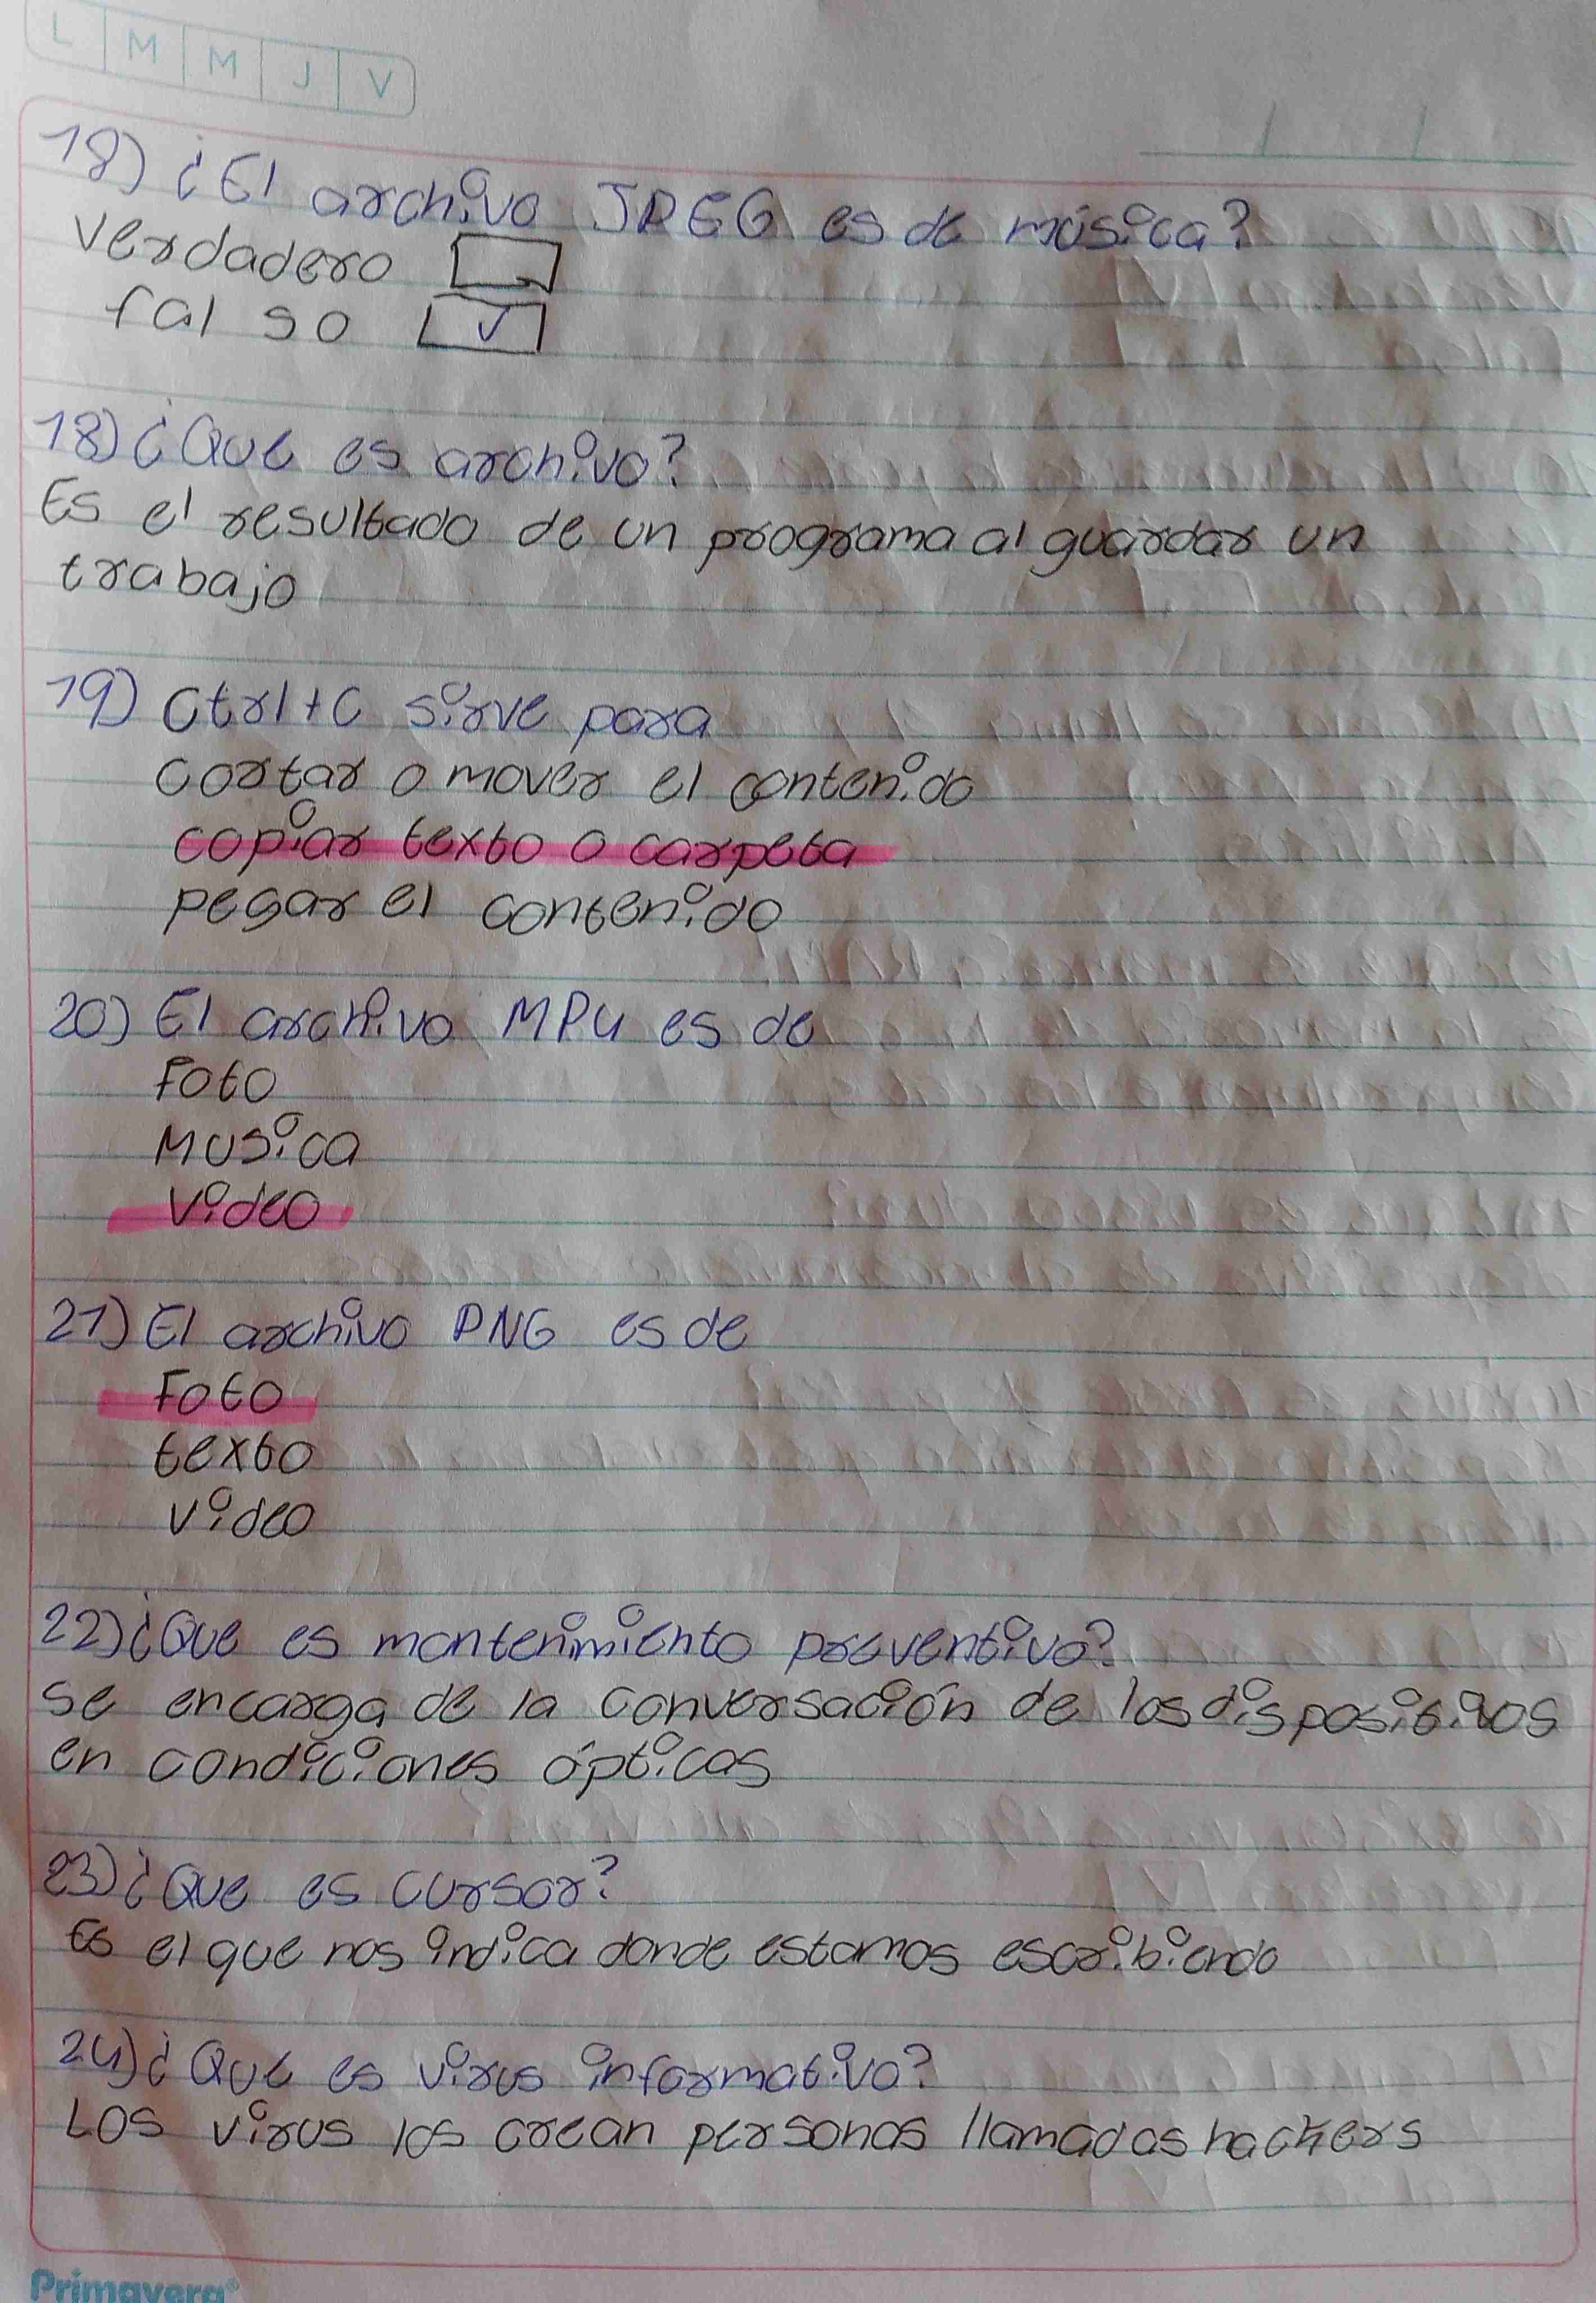 L M M J V
18) ¿El archivo JPEG es de música?
verdadero
falso ✓
18) ¿Que es archivo?
Es el resultado de un programa al guardar un
trabajo
19) Ctrl+C sirve para
cortar o mover el contenido
copiar texto o carpeta
pegar el contenido
20) El archivo MP4 es de
Foto
Musica
Video
21) El archivo PNG es de
Foto
texto
video
22) ¿Que es mantenimiento preventivo?
se encarga de la conversación de los dispositivos
en condiciones ópticas
23) ¿Que es cursor?
Es el que nos indica donde estamos escribiendo
24) ¿Que es virus informativo?
Los virus los crean personas llamadas hackers
Primavera®